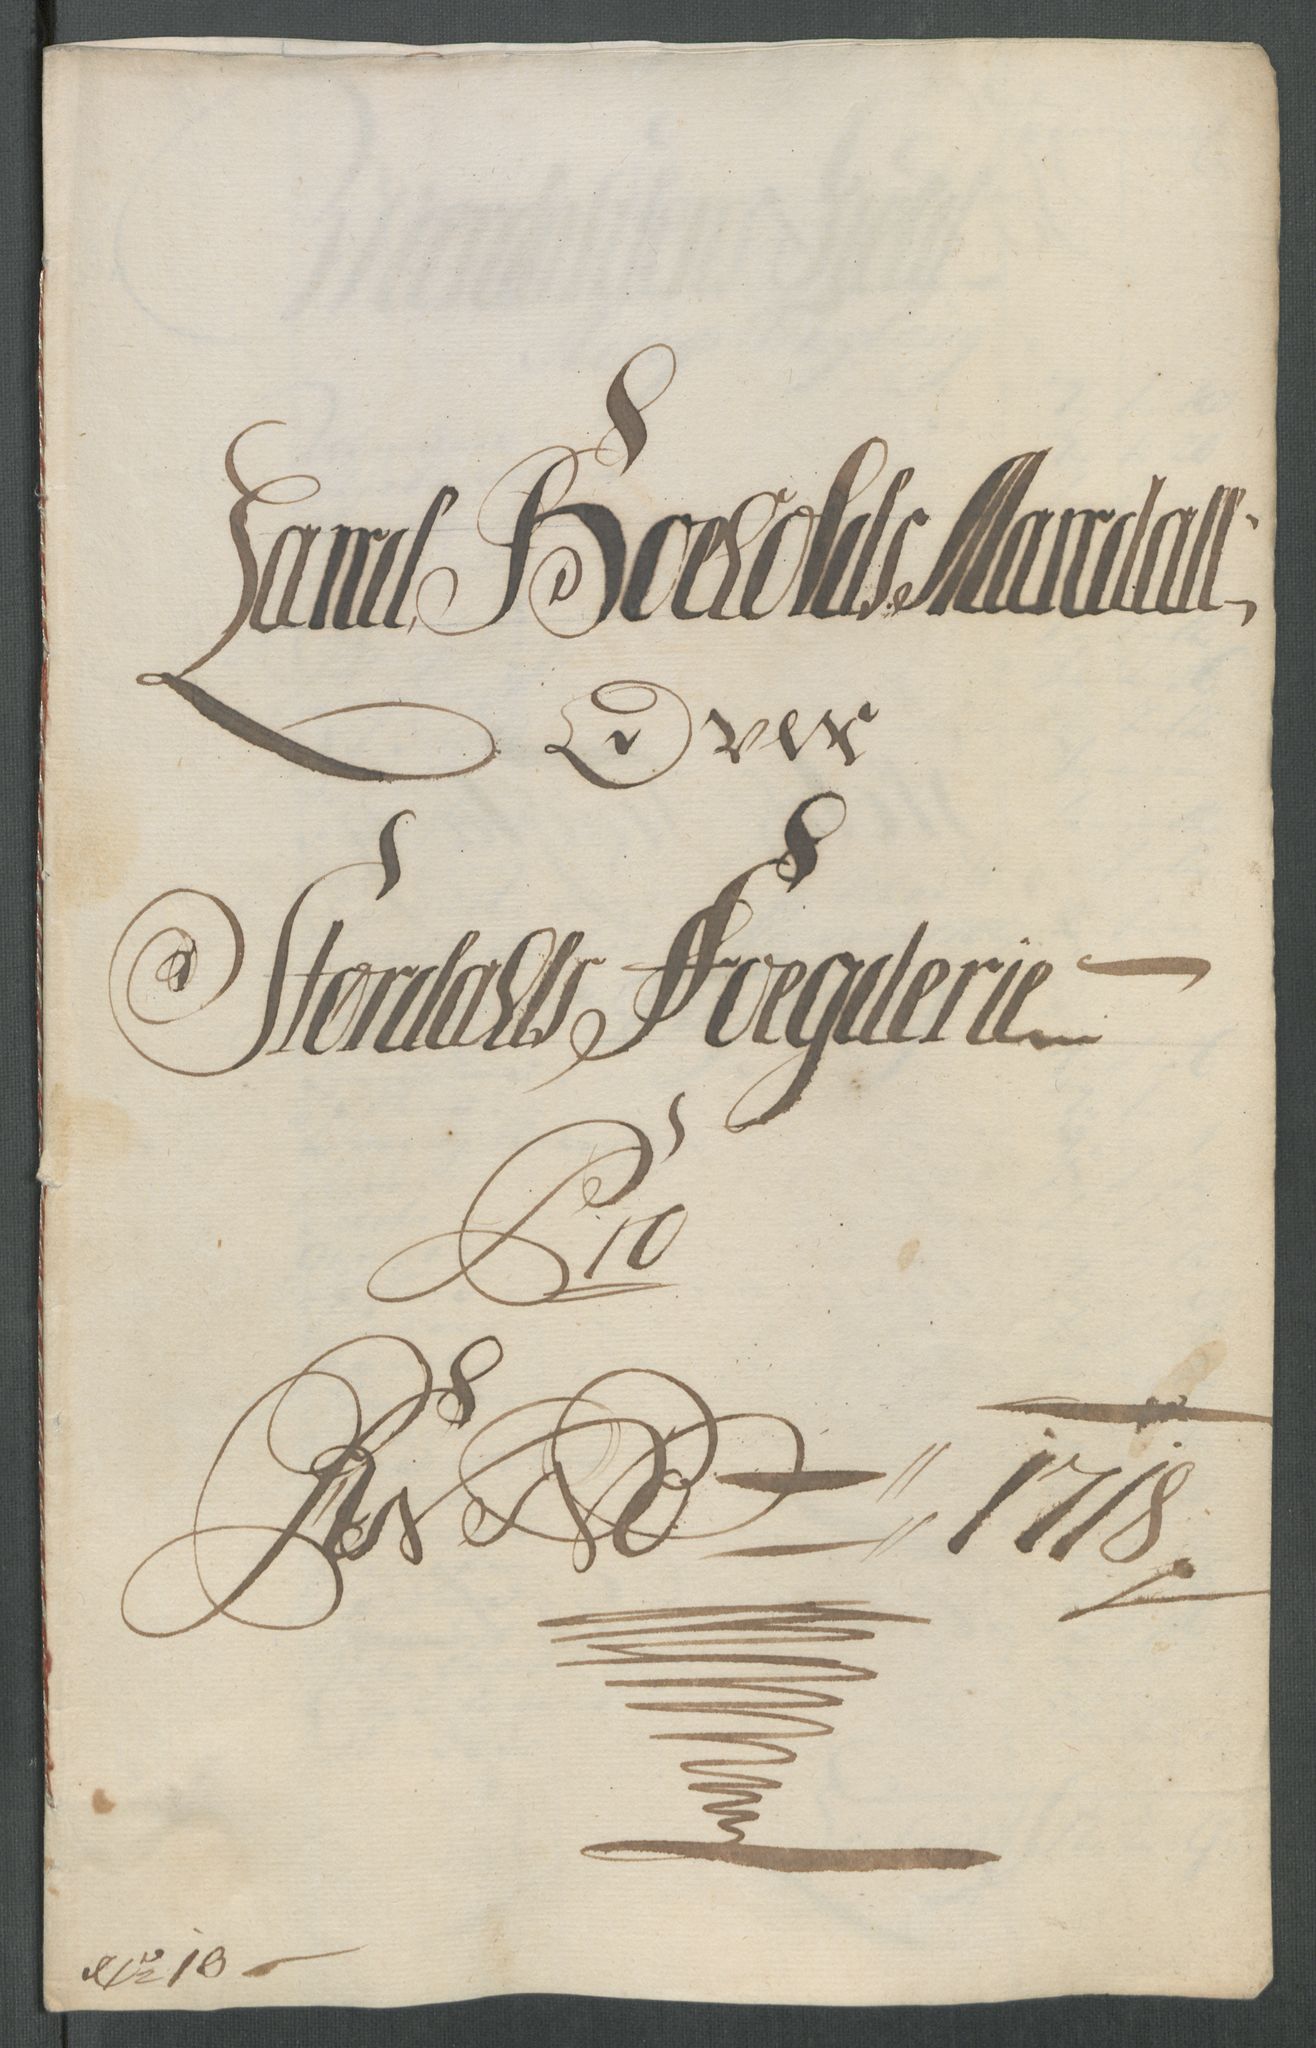 Land Boeholds Mandall:
Over
Størdahls Foegderie
Pro
Anno 1718
No 18